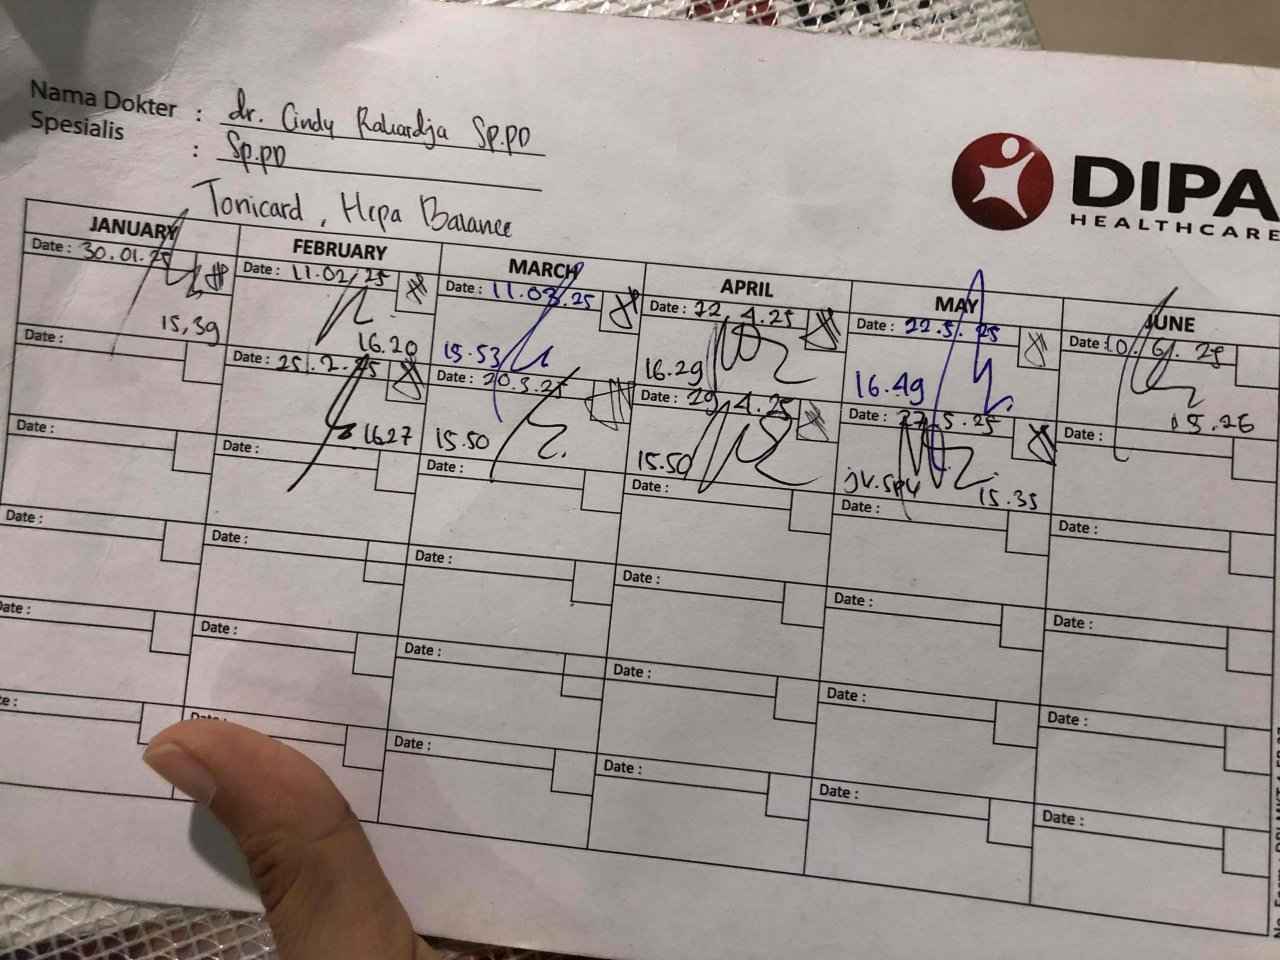 Nama Dokter : dr. Cindy Rahardja Sp.PD
Spesialis : Sp.PD
Tonicard, Hepa Balance
DIPA
HEALTHCARE
JANUARY FEBRUARY MARCH APRIL MAY JUNE
Date : 30.01.25
15,39
Date :
Date :
Date :
Date :
Date : 11.02/25
16.20
Date : 25.2.25
1627
Date :
Date :
Date :
Date : 11.03.25
15.53
Date : 20.3.25
15.50
Date :
Date :
Date :
Date :
Date : 22.4.25
16.29
Date : 29.4.25
15.50
Date :
Date :
Date :
Date :
Date : 22.5.25
16.49
Date : 27.5.25
jv.spv 15.35
Date :
Date :
Date :
Date :
Date : 10.6.25
15.26
Date :
Date :
Date :
Date :
Date :